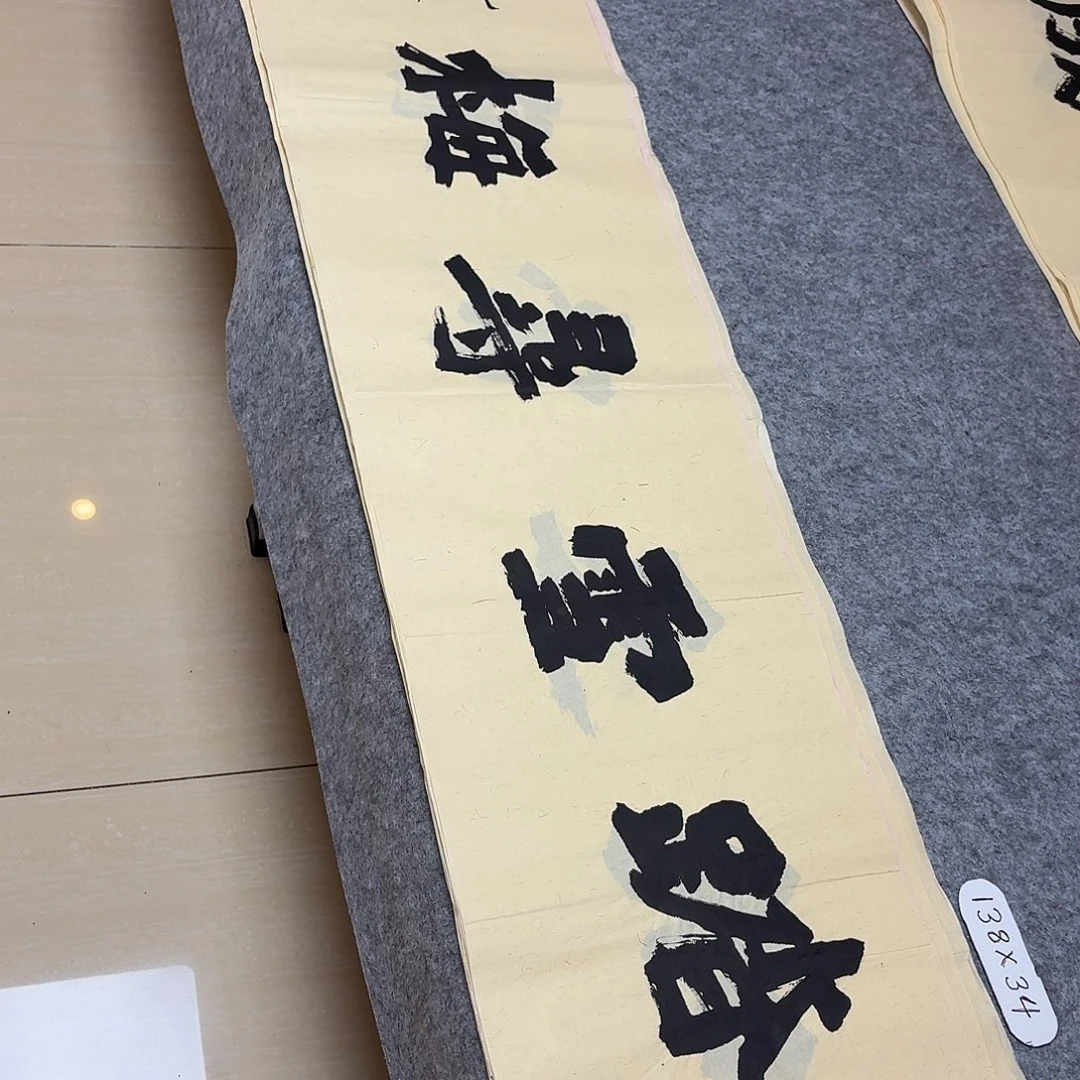 踏雪尋梅
138×34